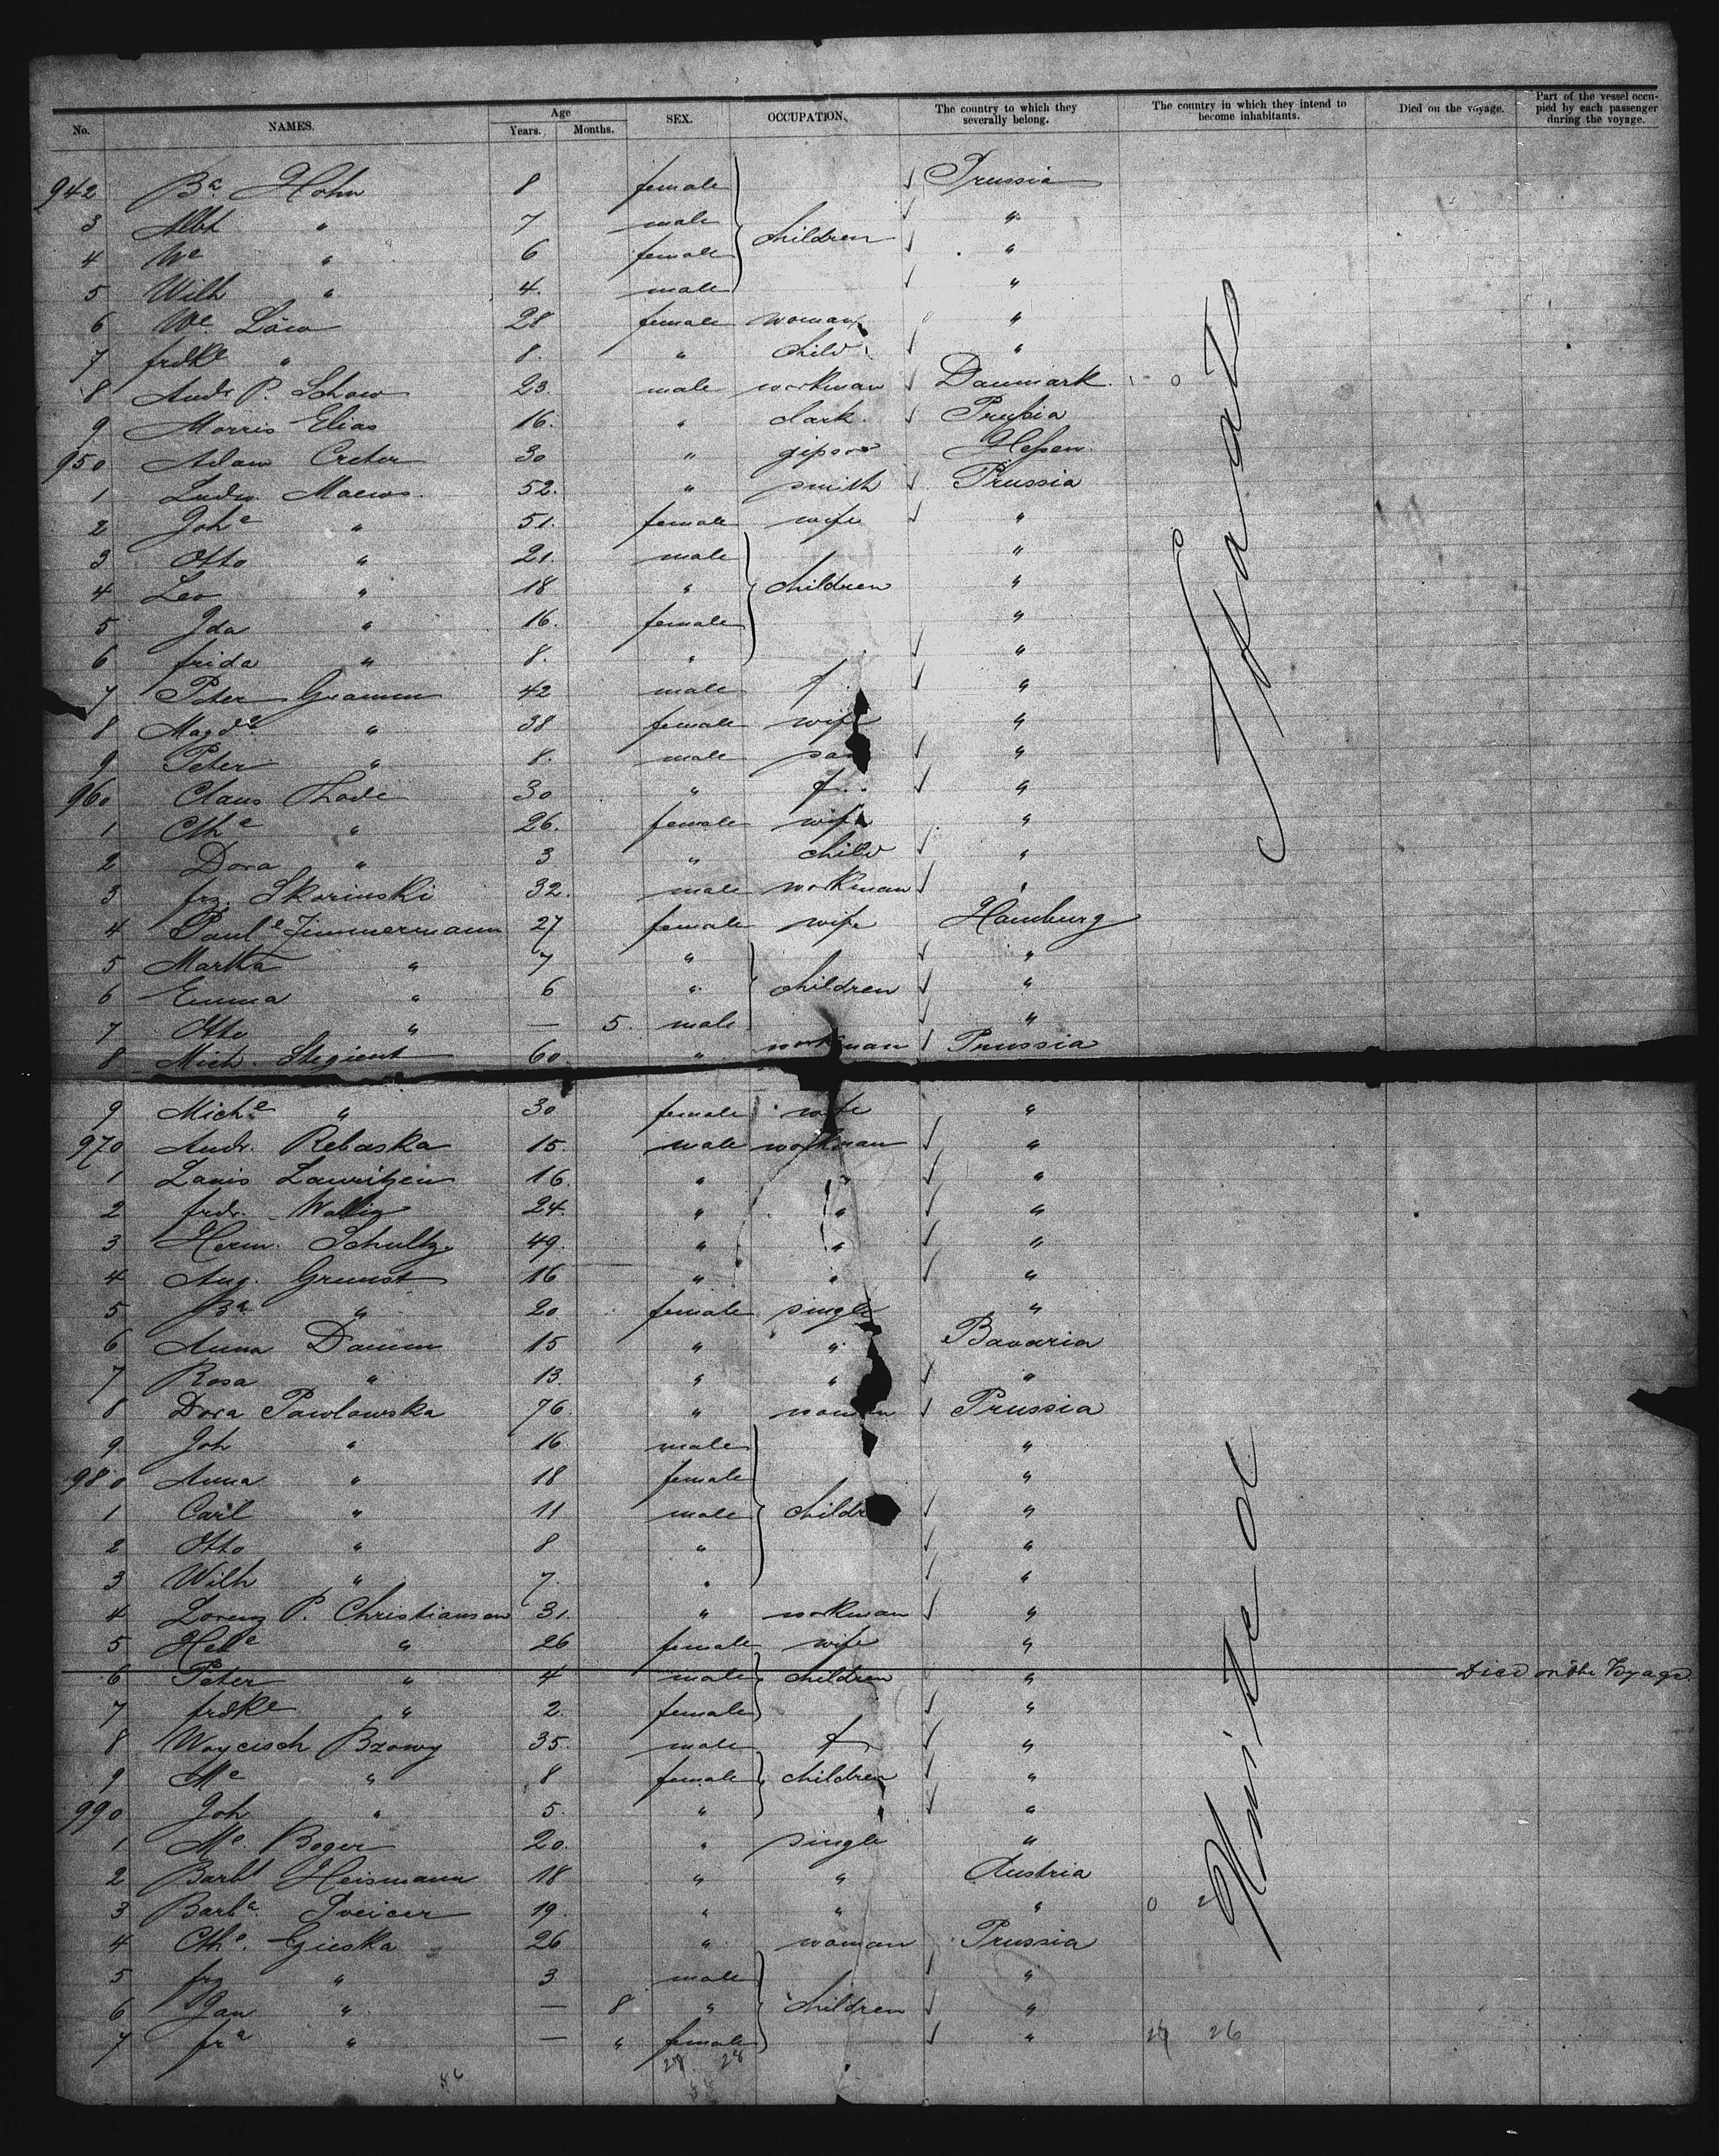 No. NAMES. Age Years. Months. SEX. OCCUPATION. The country to which they severally belong. The country in which they intend to become inhabitants. Died on the voyage. Part of the vessel occupied by each passenger during the voyage.
942 Ba Hohn 8 female Prussia
3 Albt " 7 male children "
4 We " 6 female "
5 Wilh " 4. male "
6 We Löw 28 female woman "
7 frdke " 8. " child "
8 Andr P. Schow 23. male workman Danmark
9 Morris Elias 16. " clark. Prussia
950 Adam Creter 30 " Hessen.
1 Ludw. Maews. 52. " smith Prussia
2 Johe " 51. female wife "
3 Otto " 21. male "
4 Leo " 18 " children "
5 Ida " 16. female "
6 frida " 8. " "
7 Peter Gramm 42 male f. "
8 Magde " 38 female wife "
9 Peter " 8. male son "
960 Claus Thode 30 " f. "
1 Cthe " 26. female wife "
2 Dora " 3 " child "
3 frz. Skorinski 32. male workman "
4 Paule Zimmermann 27 female wife Hamburg
5 Martha " 7 " "
6 Emma " 6 " children "
7 Otto " — 5. male "
8 Mich. Stegient 60. " workman Prussia
9 Miche " 30 female wife "
970 Andr. Rebaska 15. male workman "
1 Lauis Lauritzen 16. " " "
2 frdr. Wallig 24. " " "
3 Herm. Schultz 49. " " "
4 Aug. Grunst 16 " " "
5 Ba " 20 female single "
6 Anna Damm 15 " " Bavaria
7 Rosa " 13. " " "
8 Dora Pawlowska 76. " woman Prussia
9 Joh " 16 male "
980 Anna " 18 female "
1 Carl " 11 male children "
2 Otto " 8 " "
3 Wilh " 7. " "
4 Lorenz P. Christiansen 31. " workman "
5 Hele " 26 female wife "
6 Peter " 4 male children " Died on the Voyage.
7 frdke " 2. female "
8 Woycisch Brzowy 35. male f. "
9 Me " 8 female children "
990 Joh " 5. " "
1 Me. Boger 20. " single "
2 Barbt Heismann 18 " " Austria
3 Barba. Sveicer 19. " " "
4 Cthe. Gieska 26 " woman Prussia
5 frz " 3 male "
6 Jan " — 8 " children "
7 fra " — " female "
26
28 28
56
United States